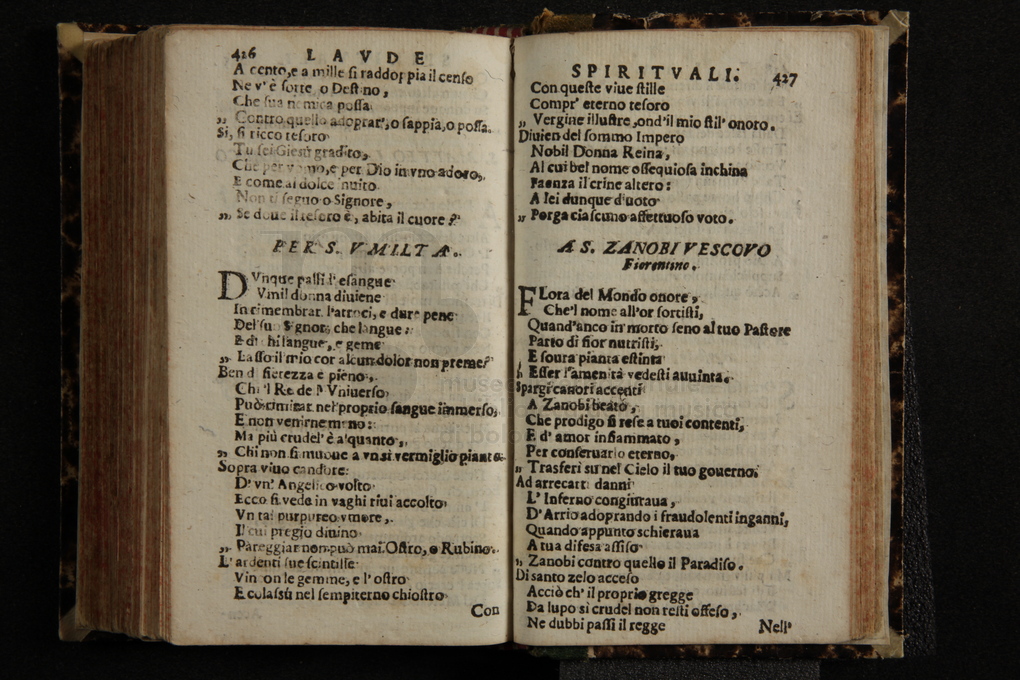 426 LAVDE
A cento, e a mille si raddoppia il censo
Ne v'è sorte, o Destino,
Che sua nemica possa
„ Contro quello adoprar', o sappia, o possa.
Si, si ricco tesoro
Tu sei Giesù gradito,
Che per vomo, e per Dio in vno adoro,
E come al dolce inuito
Non ti seguo o Signore,
„ Se doue il tesoro è, abita il cuore?
PER S. VMILTA.
DVnque passi l'esangue
Vmil donna diuiene
In rimembrar l'atroci, e dure pene
Del suo Signor, che langue:
E di chi langue, e geme
„ Lasso il mio cor alcun dolor non preme?
Ben di fierezza è pieno,
Chi 'l Re de l'Vniuerso
Può rimirar nel proprio sangue immerso,
E non venirne meno:
Ma più crudel' è alquanto,
„ Chi non si muoue a vn si vermiglio pianto.
Sopra viuo candore:
D' vn' Angelico volto
Ecco si vede in vaghi riui accolto
Vn tal purpureo vmore,
Il cui pregio diuino
„ Pareggiar non può mai Ostro, o Rubino.
L' ardenti sue scintille
Vincon le gemme, e l' ostro
E colassù nel sempiterno chiostro
Con
SPIRITVALI. 427
Con queste viue stille
Compr' eterno tesoro
„ Vergine illustre, ond'il mio stil' onoro.
Diuien del sommo Impero
Nobil Donna Reina,
Al cui bel nome ossequiosa inchina
Faenza il crine altero:
A lei dunque d'uoto
„ Porga ciascuno affettuoso voto.
A S. ZANOBI VESCOVO
Fiorentino.
FLora del Mondo onore,
Che'l nome all'or sortisti,
Quand'anco in morto seno al tuo Pastore
Parto di fior nutristi,
E soura pianta estinta
„ Esser l'amenità vedesti auuinta.
Spargi canori accenti
A Zanobi beato,
Che prodigo si rese a tuoi contenti,
E d' amor infiammato,
Per conseruarlo eterno,
„ Trasferì su nel Cielo il tuo gouerno.
Ad arrecarti danni
L' Inferno congiuraua,
D'Arrio adoprando i fraudolenti inganni,
Quando appunto schieraua
A tua difesa assiso
„ Zanobi contro quello il Paradiso.
Di santo zelo acceso
Acciò ch' il proprio gregge
Da lupo si crudel non resti offeso,
Ne dubbi passi il regge
Nell'